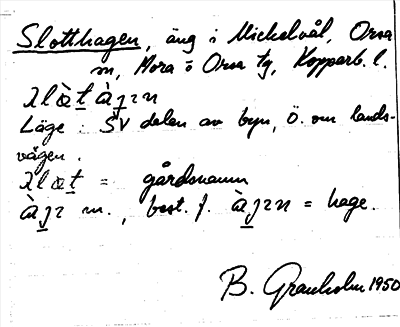 Slotthagen, äng i Mickelvål, Orsa
sn, Mora o Orsa tg, Kopparb. l.
Läge: SV delen av byn, Ö. om lands-
vägen.
= gårdsnamn
m., best. f. = hage.
B. Granholm 1950